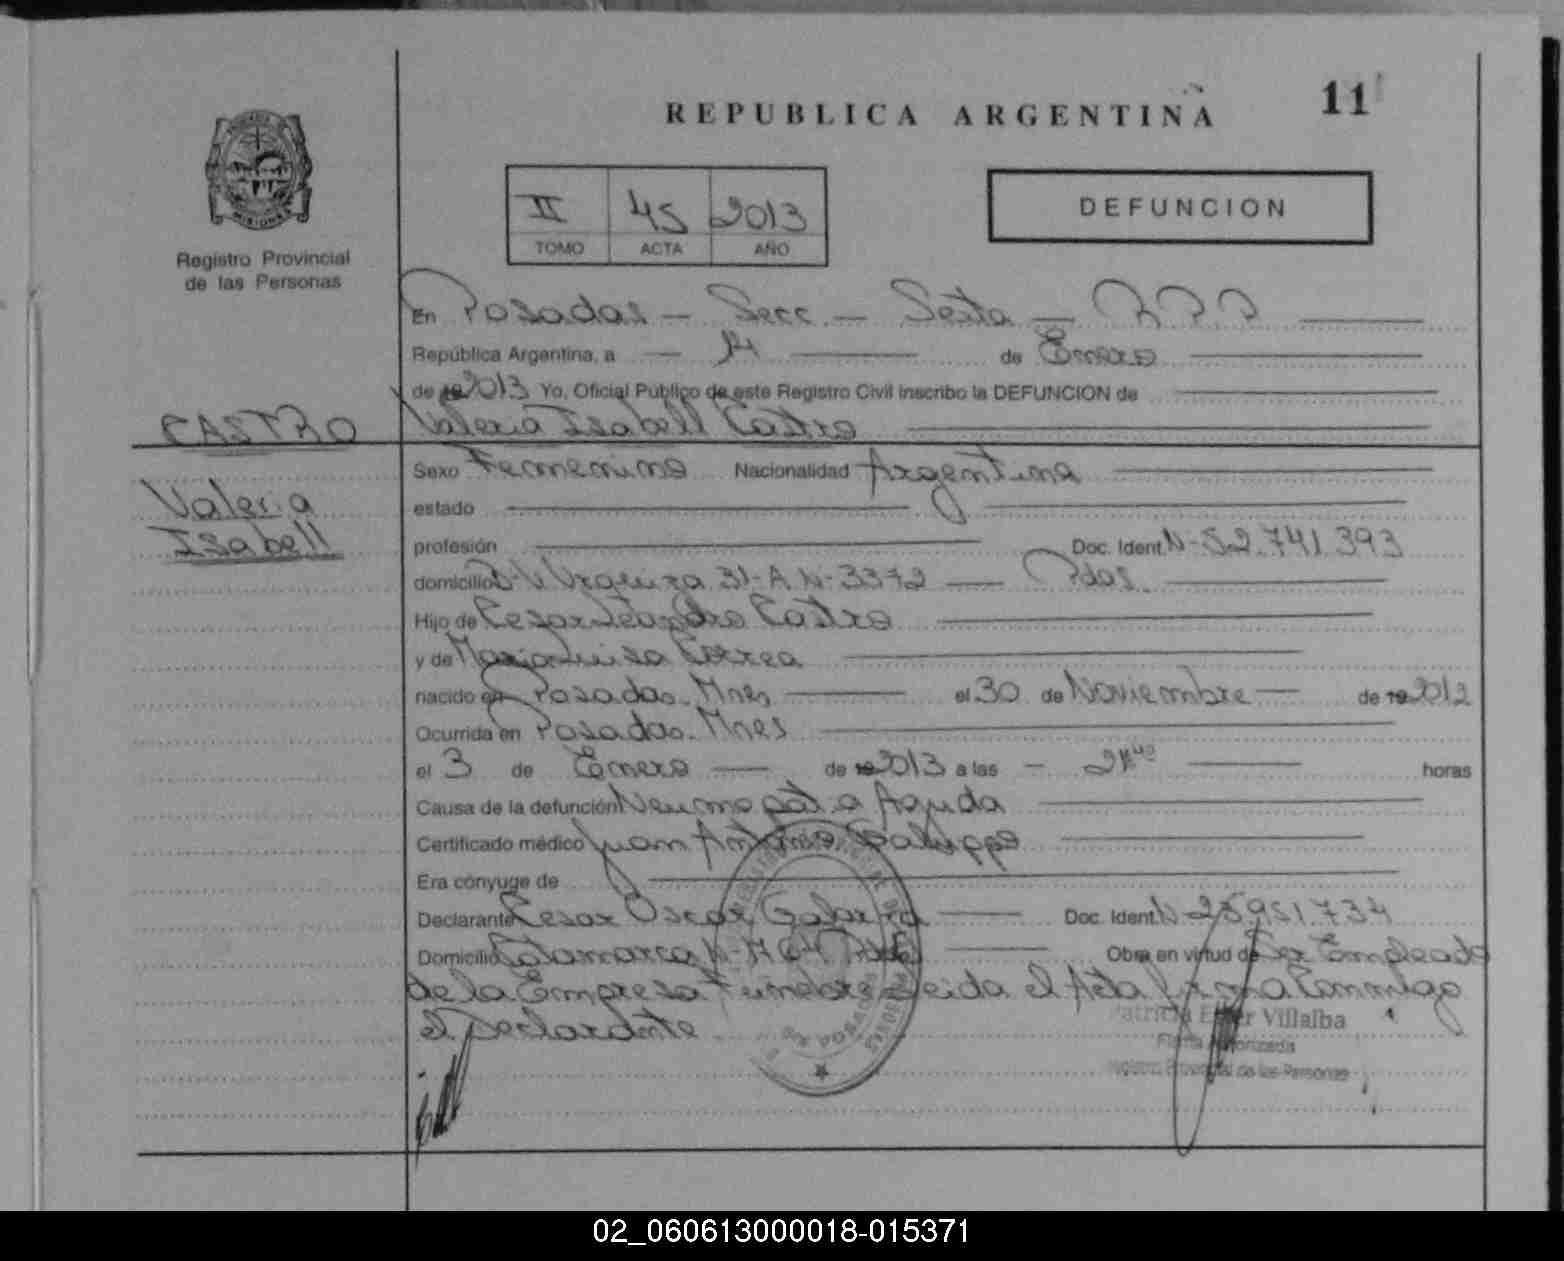 REPUBLICA ARGENTINA
11
MISIONES
Registro Provincial
de las Personas
II 45 2013
TOMO ACTA AÑO
DEFUNCION
En Posadas - Secc - Sesta - R P P
República Argentina, a de Enero
de 2013 Yo, Oficial Público de este Registro Civil inscribo la DEFUNCION de
CASTRO
Valeria Isabell Castro
Valeria
Isabell
Sexo Femenino Nacionalidad Argentina
estado
profesión Doc. Ident. N-52.741.393
domicilio Urquiza 31-A N-3372 Pdas.
Hijo de Cesar Leandro Castro
y de Maria Luisa Correa
nacido en Posadas. Mnes el 30 de Noviembre de 2012
Ocurrida en Posadas. Mnes
el 3 de Enero de 2013 a las horas
Causa de la defunción Neumopatia Aguda
Certificado médico Juan Antonio Galuppo
Era cónyuge de
Declarante Cesar Oscar Doc. Ident. N-25.951.734
Domicilio Catamarca Obra en virtud de Ser Empleado
de la Empresa Funebre Leida el Acta firma Conmigo
el Declarante
Patricia Ester Villalba
Firma Autorizada
Registro Provincial de las Personas
POSADAS
02_060613000018-015371